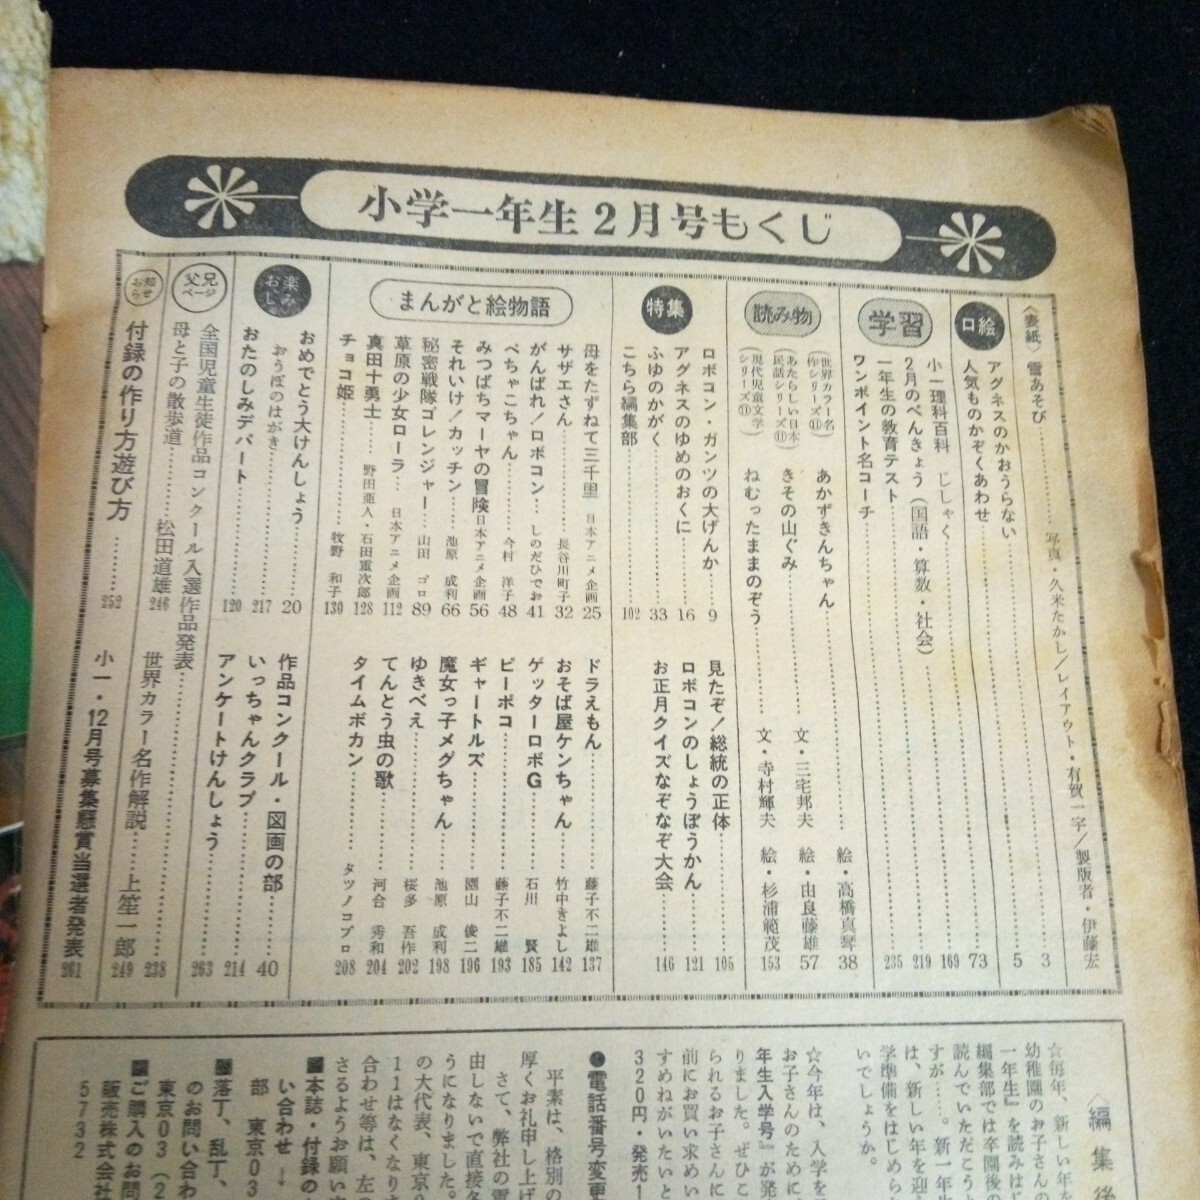 小学一年生2月号もくじ
〈表紙〉雪あそび……写真・久米たかし/レイアウト・有賀一宇/製版者・伊藤宏 3
口絵
アグネスのかおうらない………5
人気ものかぞくあわせ………73
学習
小一理科百科 じしゃく………169
2月のべんきょう(国語・算数・社会)………219
一年生の教育テスト………235
ワンポイント名コーチ
読み物
(世界カラー名作シリーズ⑪) あかずきんちゃん………絵・高橋真琴 38
(あたらしい日本民話シリーズ⑪) きその山ぐみ………文・三宅邦夫 絵・由良藤雄 57
(現代児童文学シリーズ⑪) ねむったままのぞう………文・寺村輝夫 絵・杉浦範茂 153
特集
ロボコン・ガンツの大げんか………9
アグネスのゆめのおくに………16
ふゆのかがく………33
こちら編集部………102
見たぞ!総統の正体………105
ロボコンのしょうぼうかん………121
お正月クイズなぞなぞ大会………146
まんがと絵物語
母をたずねて三千里 日本アニメ企画 25
サザエさん………長谷川町子 32
がんばれ!ロボコン…しのだひでお 41
ぺちゃこちゃん………今村 洋子 48
みつばちマーヤの冒険 日本アニメ企画 56
それいけ!カッチン………池原 成利 66
秘密戦隊ゴレンジャー…山田 ゴロ 89
草原の少女ローラ…日本アニメ企画 112
真田十勇士………野田亜人・石田重次郎 128
チョコ姫………牧野 和子 130
ドラえもん………藤子不二雄 137
おそば屋ケンちゃん………竹中きよし 142
ゲッターロボG………石川 賢 185
ピーポコ………藤子不二雄 193
ギャートルズ………園山 俊二 196
魔女っ子メグちゃん………池原 成利 198
ゆきべえ………桜多 吾作 202
てんとう虫の歌………河合 秀和 204
タイムボカン………タツノコプロ 208
お楽しみ
おめでとう大けんしょう………20
おうぼのはがき………217
おたのしみデパート………120
作品コンクール・図画の部………40
いっちゃんクラブ………214
アンケートけんしょう………263
父兄ページ
全国児童生徒作品コンクール入選作品発表………238
母と子の散歩道………松田道雄 246
世界カラー名作解説………上笙一郎 249
お知らせ
付録の作り方遊び方………252
小一・12月号募集懸賞当選者発表 261
〈編集後
☆毎年、新しい年
幼稚園のお子さん
一年生』を読みは
編集部では卒園後
読んでいただこう
すが……。新一年生
は、新しい年を迎え
学準備をはじめら
いでしょうか。
☆今年は、入学を
お子さんのために
年生入学号』が発
りました。ぜひこ
られるお子さんに
前にお買い求めい
すめねがいたいと
320円・発売1
●電話番号変更
平素は、格別の
厚くお礼申し上げ
さて、弊社の電
由しないで直接各
うになりました。
の大代表、東京2
11はなくなりま
合わせ等は、左
さるようお願い
■本誌・付録の
い合わせ→
部 東京03
■落丁、乱丁、
のお問い合わ
東京03(2
■ご購入のお問
販売株式会社
5732